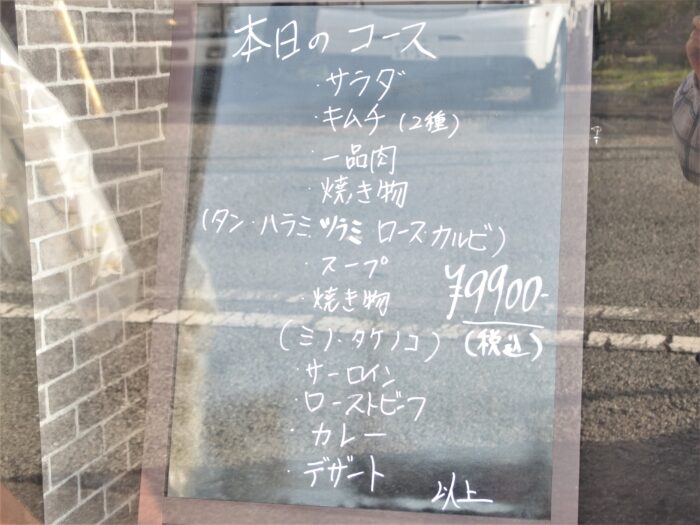 本日のコース
・サラダ
・キムチ(2種)
・一品肉
・焼き物
(タン・ハラミ・ツラミ ロース・カルビ)
・スープ
・焼き物
(ミノ・タケノコ)
・サーロイン
・ローストビーフ
・カレー
・デザート
¥9900-
(税込)
以上